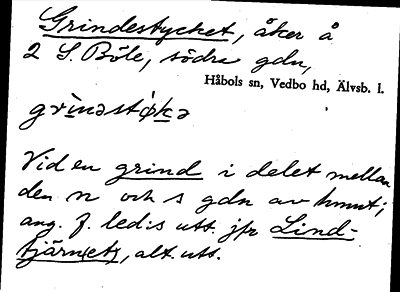 Grindestycket, åker å
2 S. Böle, södra gdn,
Håbols sn, Vedbo hd, Älvsb. l.
grìnəstýkə
Vid en grind i delet mellan
den n och s gdn av hmnt;
ang. f. led:s utt. jfr Lind-
tjärn(et), alt. utt.